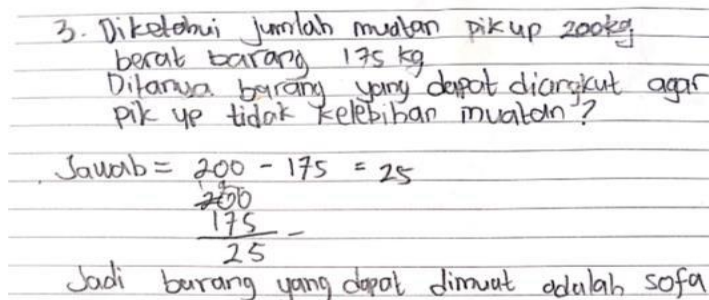 3. Diketahui jumlah muatan pikup 200kg
berat barang 175 kg
Ditanya barang yang dapat diangkut agar
pik up tidak kelebihan muatan?
Jawab = 200 - 175 = 25
200
175 -
25
Jadi barang yang dapat dimuat adalah sofa